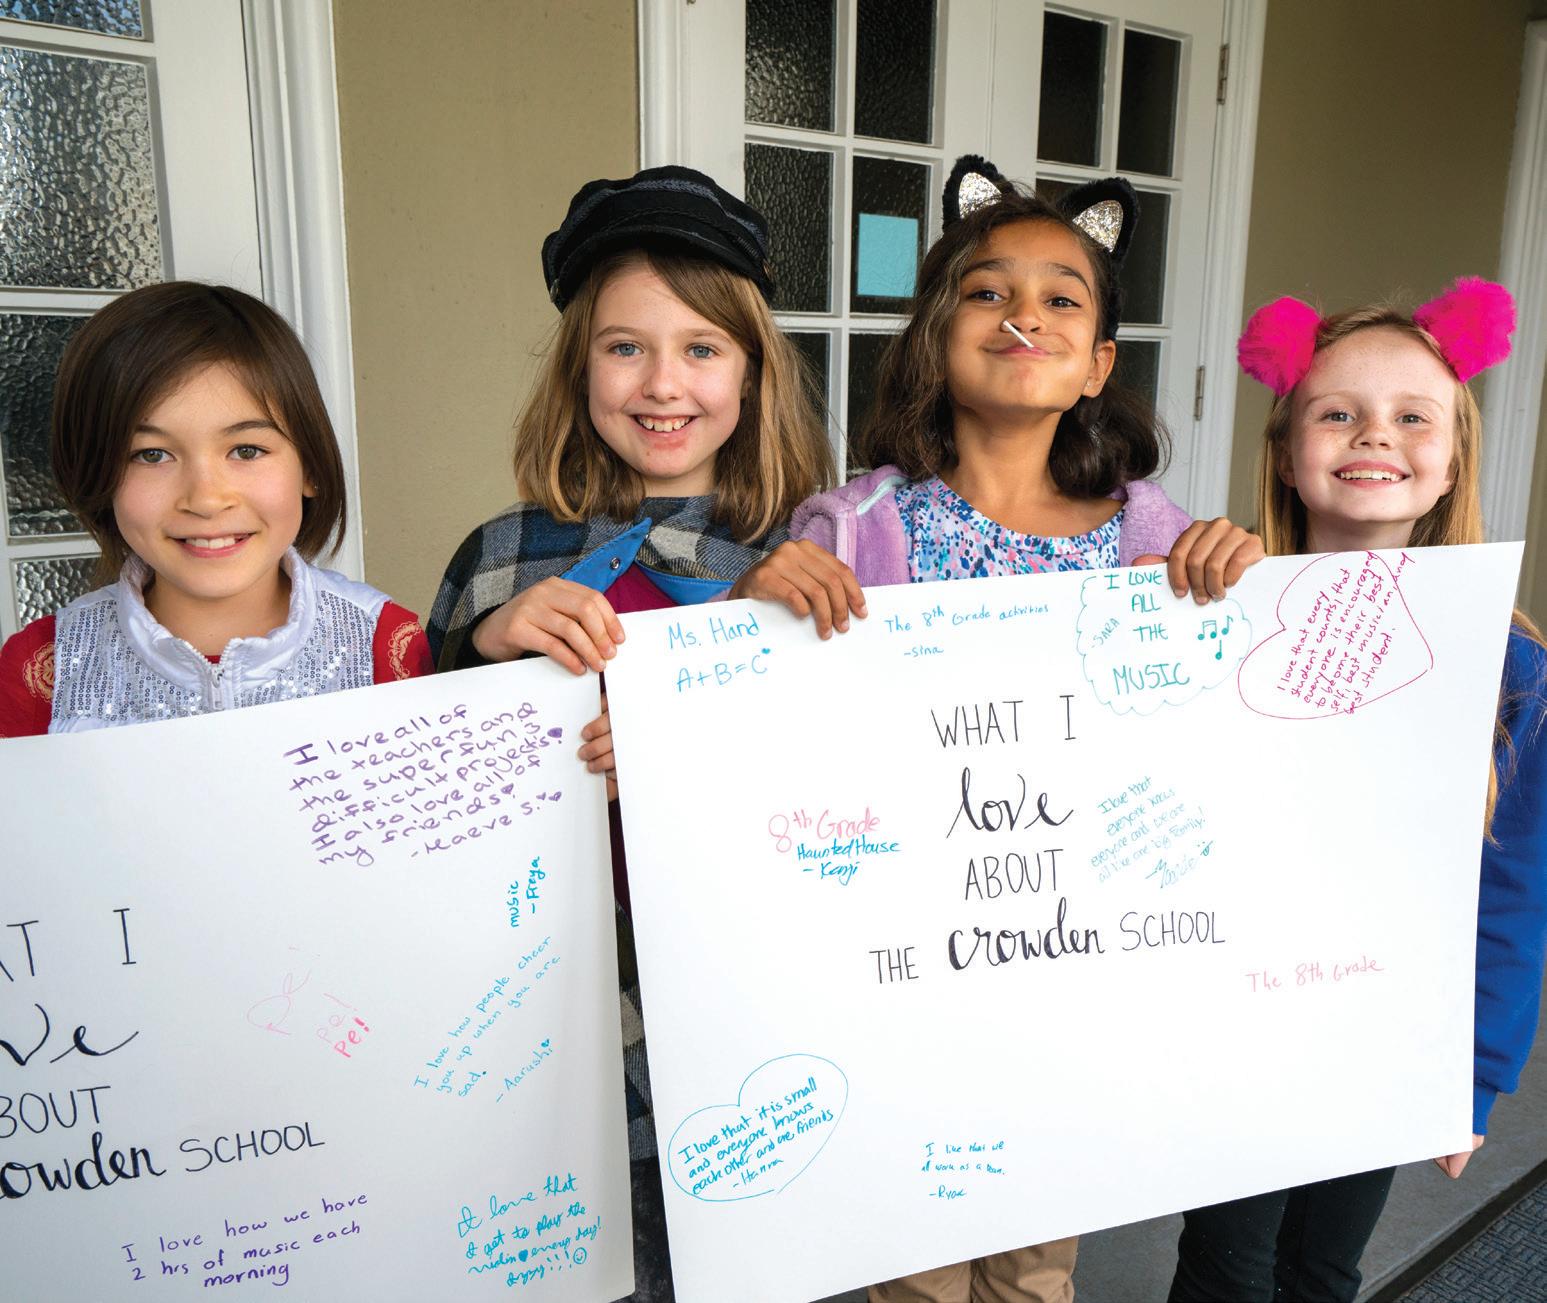 I love all of
the teachers and
the super fun &
difficult projects!
I also love all of
my friends!
-Maeve S.
music
- Freya
T I
ve
BOUT
owden SCHOOL
Pe!
Pe!
I love how people cheer
you up when you are
sad.
- Aarushi
I love how we have
2 hrs of music each
morning
I love that
I get to play the
violin every day!
!!!
Ms. Hand
A+B=C
The 8th Grade activities
-Sina
I LOVE
ALL
THE
MUSIC
-SARA
I love that every
student counts, that
everyone is encouraged
to become their best
self, best musician, and
best student.
WHAT I
love
ABOUT
THE Crowden SCHOOL
8th Grade
Haunted House
- Kenji
I love that
everyone knows
everyone and we are
all like one big family!
The 8th Grade
I love that it is small
and everyone knows
each other and are friends
- Hanna
I like that we
all work as a team.